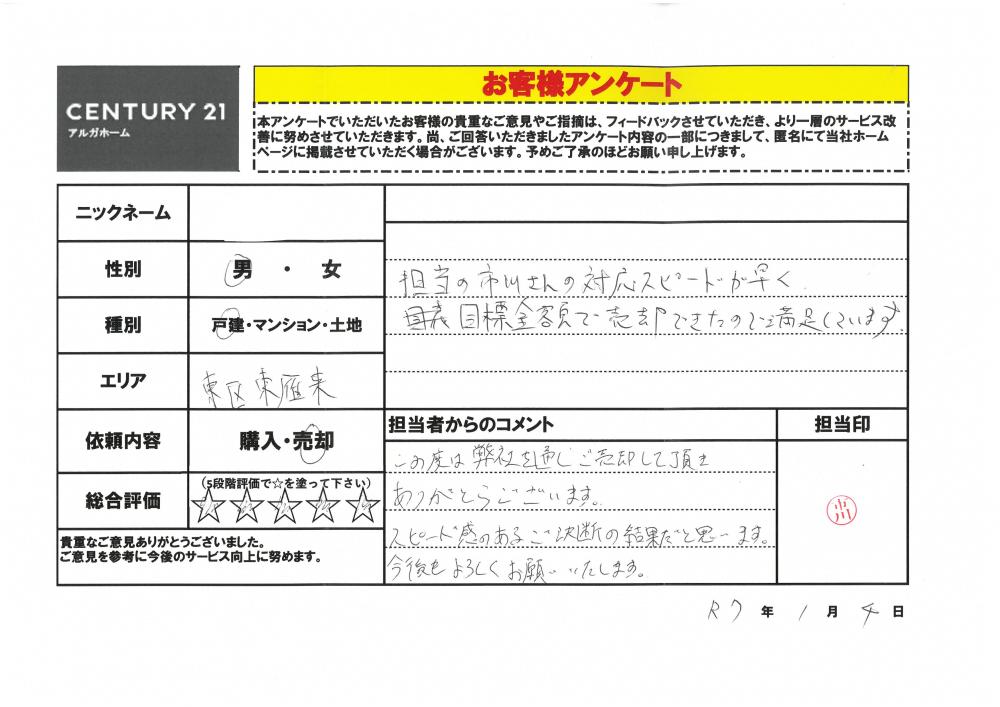 CENTURY 21
アルガホーム
お客様アンケート
本アンケートでいただいたお客様の貴重なご意見やご指摘は、フィードバックさせていただき、より一層のサービス改
善に努めさせていただきます。尚、ご回答いただきましたアンケート内容の一部につきまして、匿名にて当社ホーム
ページに掲載させていただく場合がございます。予めご了承のほどお願い申し上げます。
ニックネーム
性別
男 ・ 女
種別
戸建・マンション・土地
エリア
東区東雁来
依頼内容
購入・売却
総合評価
(5段階評価で☆を塗って下さい)
貴重なご意見ありがとうございました。
ご意見を参考に今後のサービス向上に努めます。
担当の市川さんの対応スピードが早く
目標金額で売却できたので満足しています。
担当者からのコメント
この度は弊社を通しご売却して頂き
ありがとうございます。
スピード感のあるご決断の結果だと思います。
今後もよろしくお願いいたします。
担当印
市川
R7年1月4日